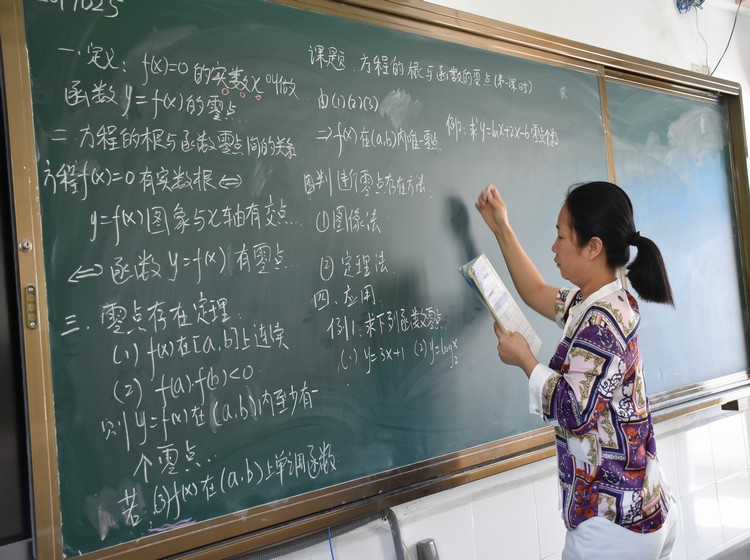 一.定义: f(x)=0的实数x叫做
函数y=f(x)的零点
二 方程的根与函数零点间的关系
方程f(x)=0有实数根⇔
y=f(x)图象与x轴有交点..
⇔函数y=f(x)有零点..
三.零点存在定理:
(1) f(x)在[a,b]上连续
(2) f(a)·f(b)<0
则y=f(x)在(a,b)内至少有一
个零点..
若(3)f(x)在(a,b)上单调函数
课题.方程的根与函数的零点(第一课时)
由(1)(2)(3)
⇒f(x)在(a,b)内唯一零点
判断零点存在方法.
①图像法
②定理法
四.应用.
例1:求下列函数零点.
(1) y=3x+1 (2) y=log₂x
例2:求y=lnx+2x-6零点个数